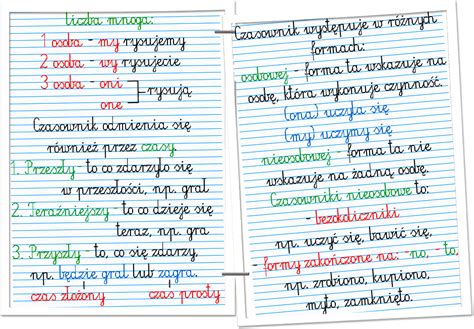 liczba mnoga:
1 osoba - my rysujemy
2 osoba - wy rysujecie
3 osoba - oni
one
rysują
Czasownik odmienia się
również przez czasy.
1. Przeszły - to co zdarzyło się
w przeszłości, np. grał
2. Teraźniejszy - to co dzieje się
teraz, np. gra
3. Przyszły - to, co się zdarzy,
np. będzie grał lub zagra.
czas złożony czas prosty
Czasownik występuje w różnych
formach:
osobowej - forma ta wskazuje na
osobę, która wykonuje czynność.
(ona) uczyła się
(my) uczymy się
nieosobowej - forma ta nie
wskazuje na żadną osobę.
Czasowniki nieosobowe to:
- bezokoliczniki
np. uczyć się, bawić się,
- formy zakończone na: -no, -to,
np. zrobiono, kupiono,
myto, zamknięto.